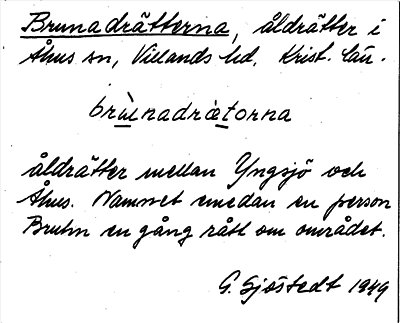 Brunadrätterna, åldrätter i
Åhus sn, Villands hd, Krist. län.
brùnadrætorna
åldrätter mellan Yngsjö och
Åhus. Namnet emedan en person
Bruhn en gång rått om området.
G. Sjöstedt 1949